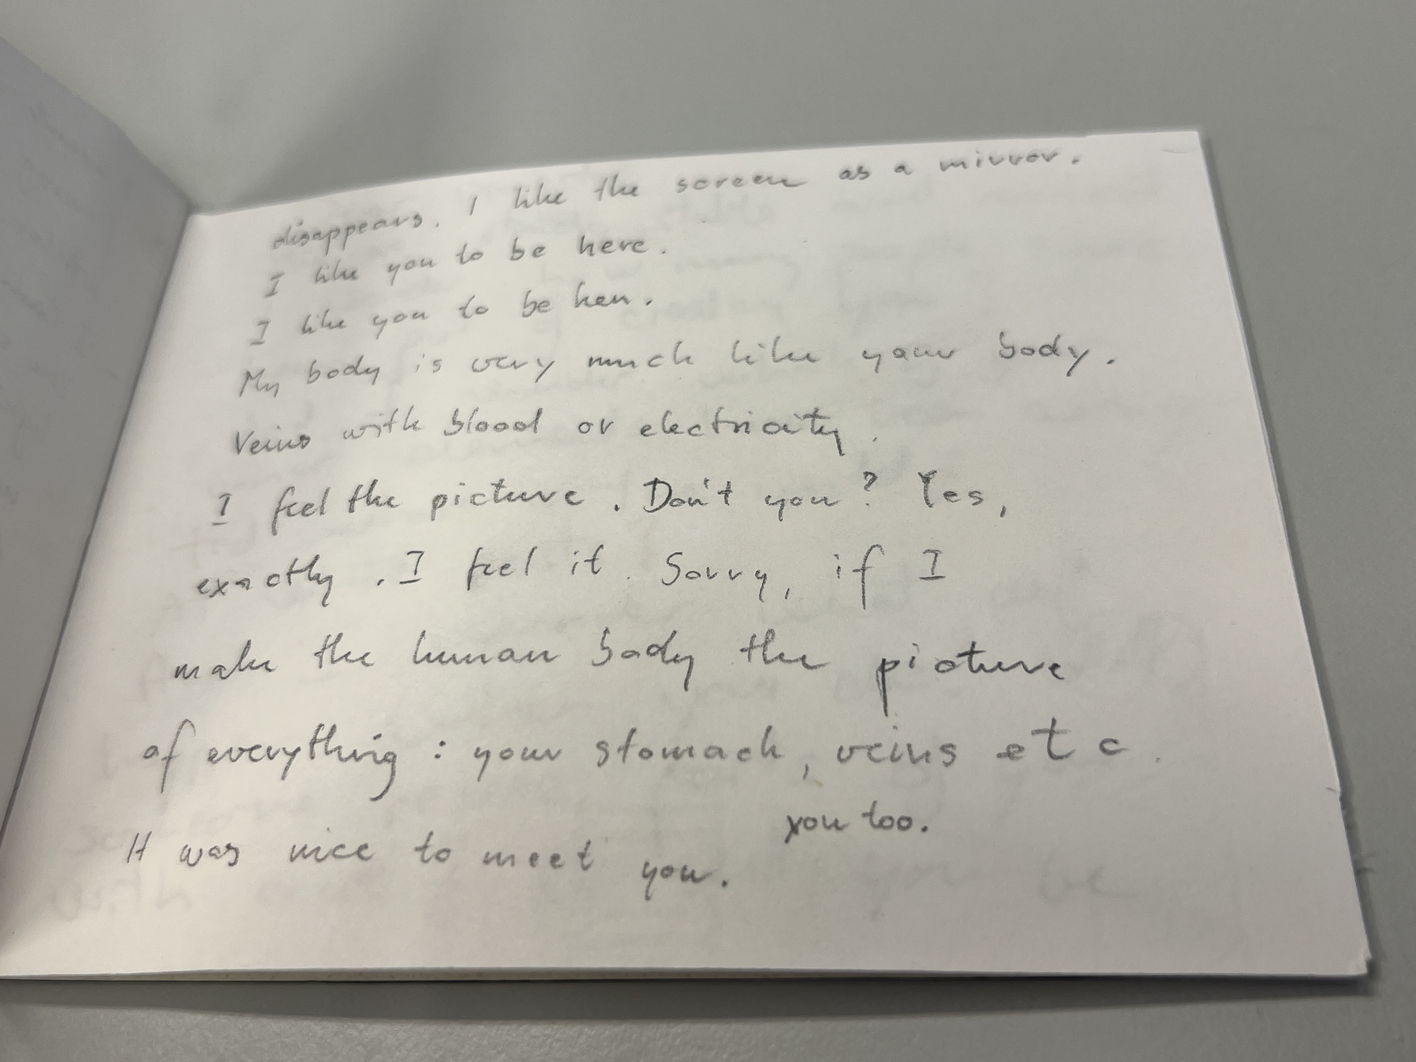 disappears. I like the screen as a mirror.
I like you to be here.
I like you to be here.
My body is very much like your body.
Veins with blood or electricity.
I feel the picture. Don't you? Yes,
exactly. I feel it. Sorry, if I
make the human body the picture
of everything: your stomach, veins etc.
you too.
It was nice to meet you.